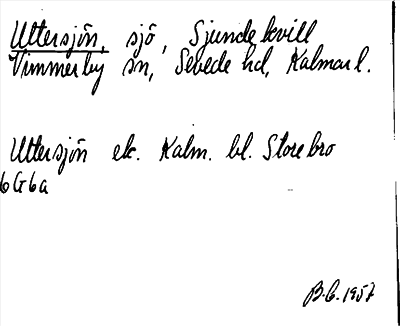 Uttersjön, sjö, Sjundekvill
Vimmerby sn, Sevede hd, Kalmar l.
Uttersjön ek. Kalm. bl. Storebro
6G6a
B.G. 1957